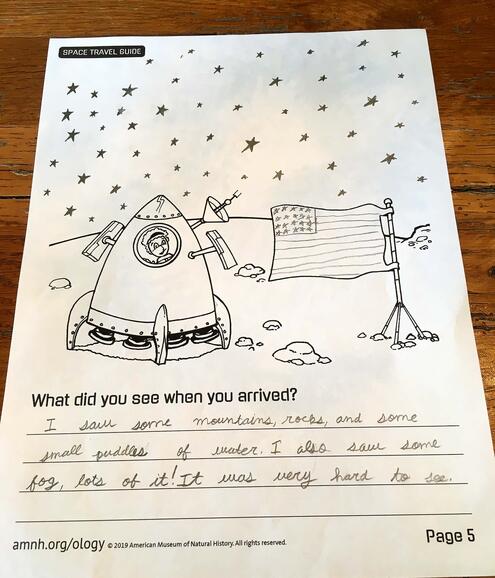 SPACE TRAVEL GUIDE
What did you see when you arrived?
I saw some mountains, rocks, and some
small puddles of water. I also saw some
fog, lots of it! It was very hard to see.
amnh.org/ology © 2019 American Museum of Natural History. All rights reserved.
Page 5